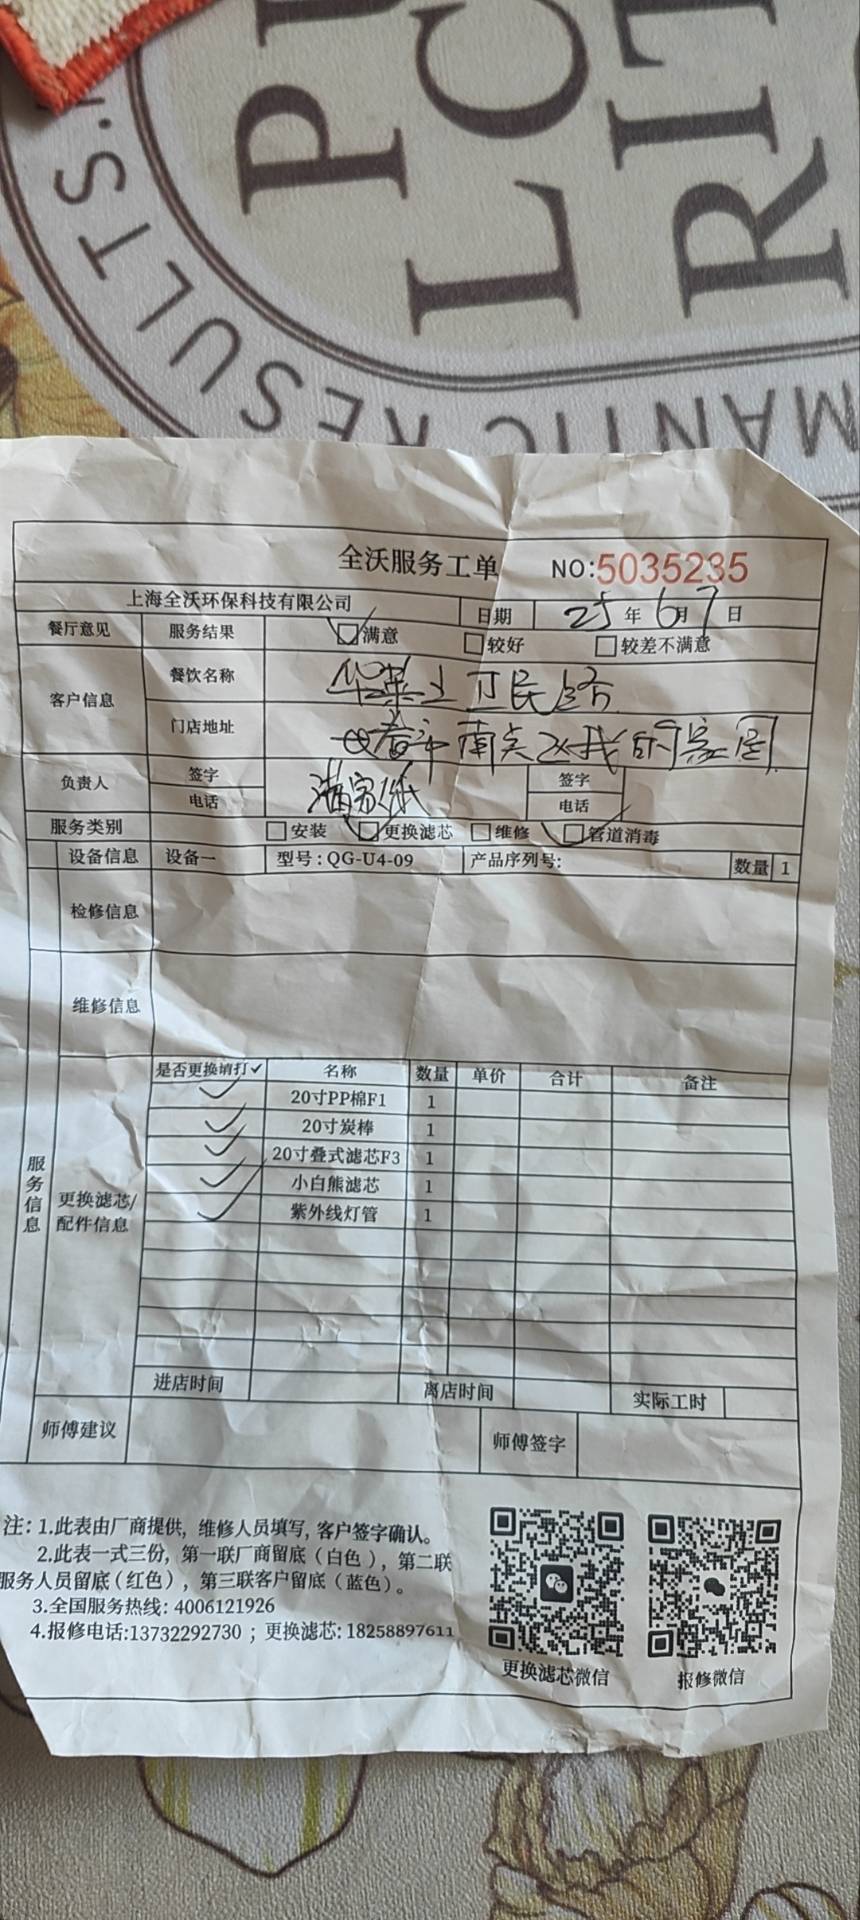 全沃服务工单 NO:5035235
上海全沃环保科技有限公司 日期 25年6月7日
餐厅意见 服务结果 满意 较好 较差不满意
客户信息 餐饮名称 华莱士 民路
门店地址 市南 家园
负责人 签字 签字
电话 电话
服务类别 安装 更换滤芯 维修 管道消毒
设备信息 设备一 型号:QG-U4-09 产品序列号: 数量 1
检修信息
维修信息
服务信息
更换滤芯/
配件信息
是否更换请打✓ 名称 数量 单价 合计 备注
✓ 20寸PP棉F1 1
✓ 20寸炭棒 1
✓ 20寸叠式滤芯F3 1
✓ 小白熊滤芯 1
✓ 紫外线灯管 1
进店时间 离店时间 实际工时
师傅建议 师傅签字
注: 1.此表由厂商提供, 维修人员填写, 客户签字确认。
2.此表一式三份, 第一联厂商留底(白色), 第二联
服务人员留底(红色), 第三联客户留底(蓝色)。
3.全国服务热线: 4006121926
4.报修电话:13732292730 ; 更换滤芯: 18258897611
更换滤芯微信 报修微信
RESULTS.